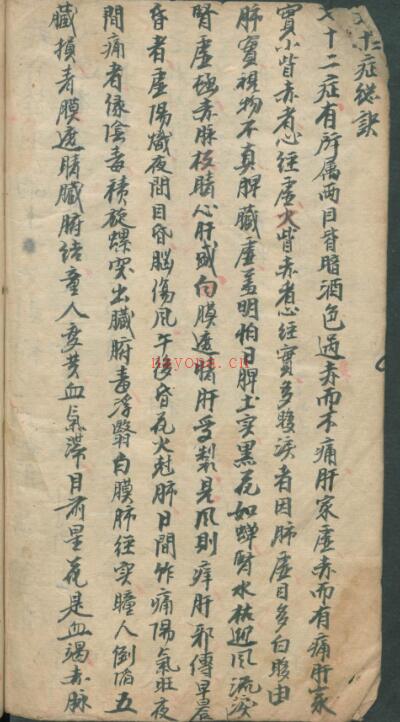 七十二症総訣
七十二症有所属两目昏暗酒色过赤而不痛肝家虚赤而有痛肝家
實小眥赤者心经虚火眥赤者心经實多眵淚者因肺虚目多白眵由
肺實視物不真脾臓虚羞明怕日脾土实黑花如蝉腎水枯迎風流淚
腎虚極赤脉校睛心肝盛白膜遮睛肝受製見風則痒肝邪傳早晨
昏者虚陽熾夜間目昏脳傷風午後昏花火尅肺日間作痛陽氣旺夜
間痛者係陰毒積旋螺突出臓腑毒浮翳白膜肺经实瞳人倒陷五
臓損青膜遮睛臓腑结童人变黄血氣滞目前星花是血竭赤脉
nayona.cn